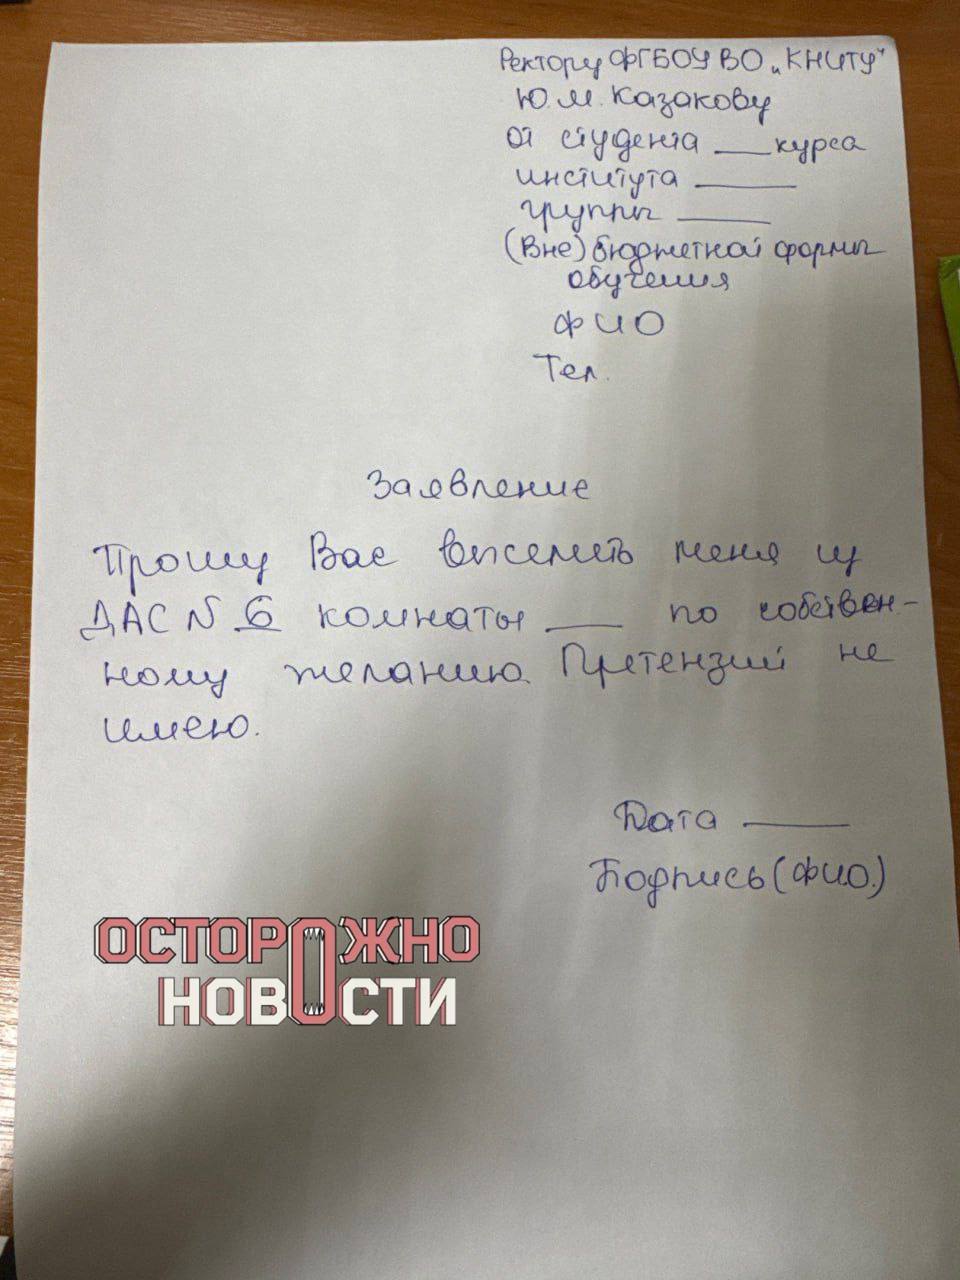 Ректору ФГБОУ ВО „КНИТУ"
Ю.М. Казакову
от студента ___ курса
института ______
группы ______
(Вне) бюджетной формы
обучения
ФИО
Тел.
Заявление
Прошу Вас выселить меня из
ДАС № 6 комнаты ____ по собствен-
ному желанию. Претензий не
имею.
Дата ______
Подпись (Ф.И.О.)
ОСТОРОЖНО
НОВОСТИ